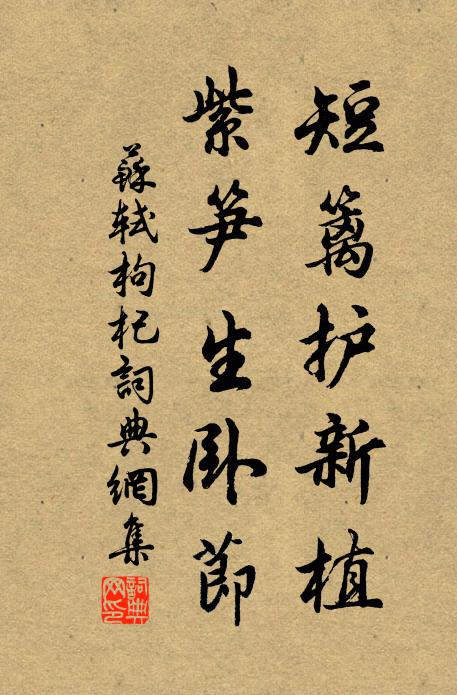 短篱护新植
紫笋生卧節
蘇軾枸杞詞典網集
詞典网印